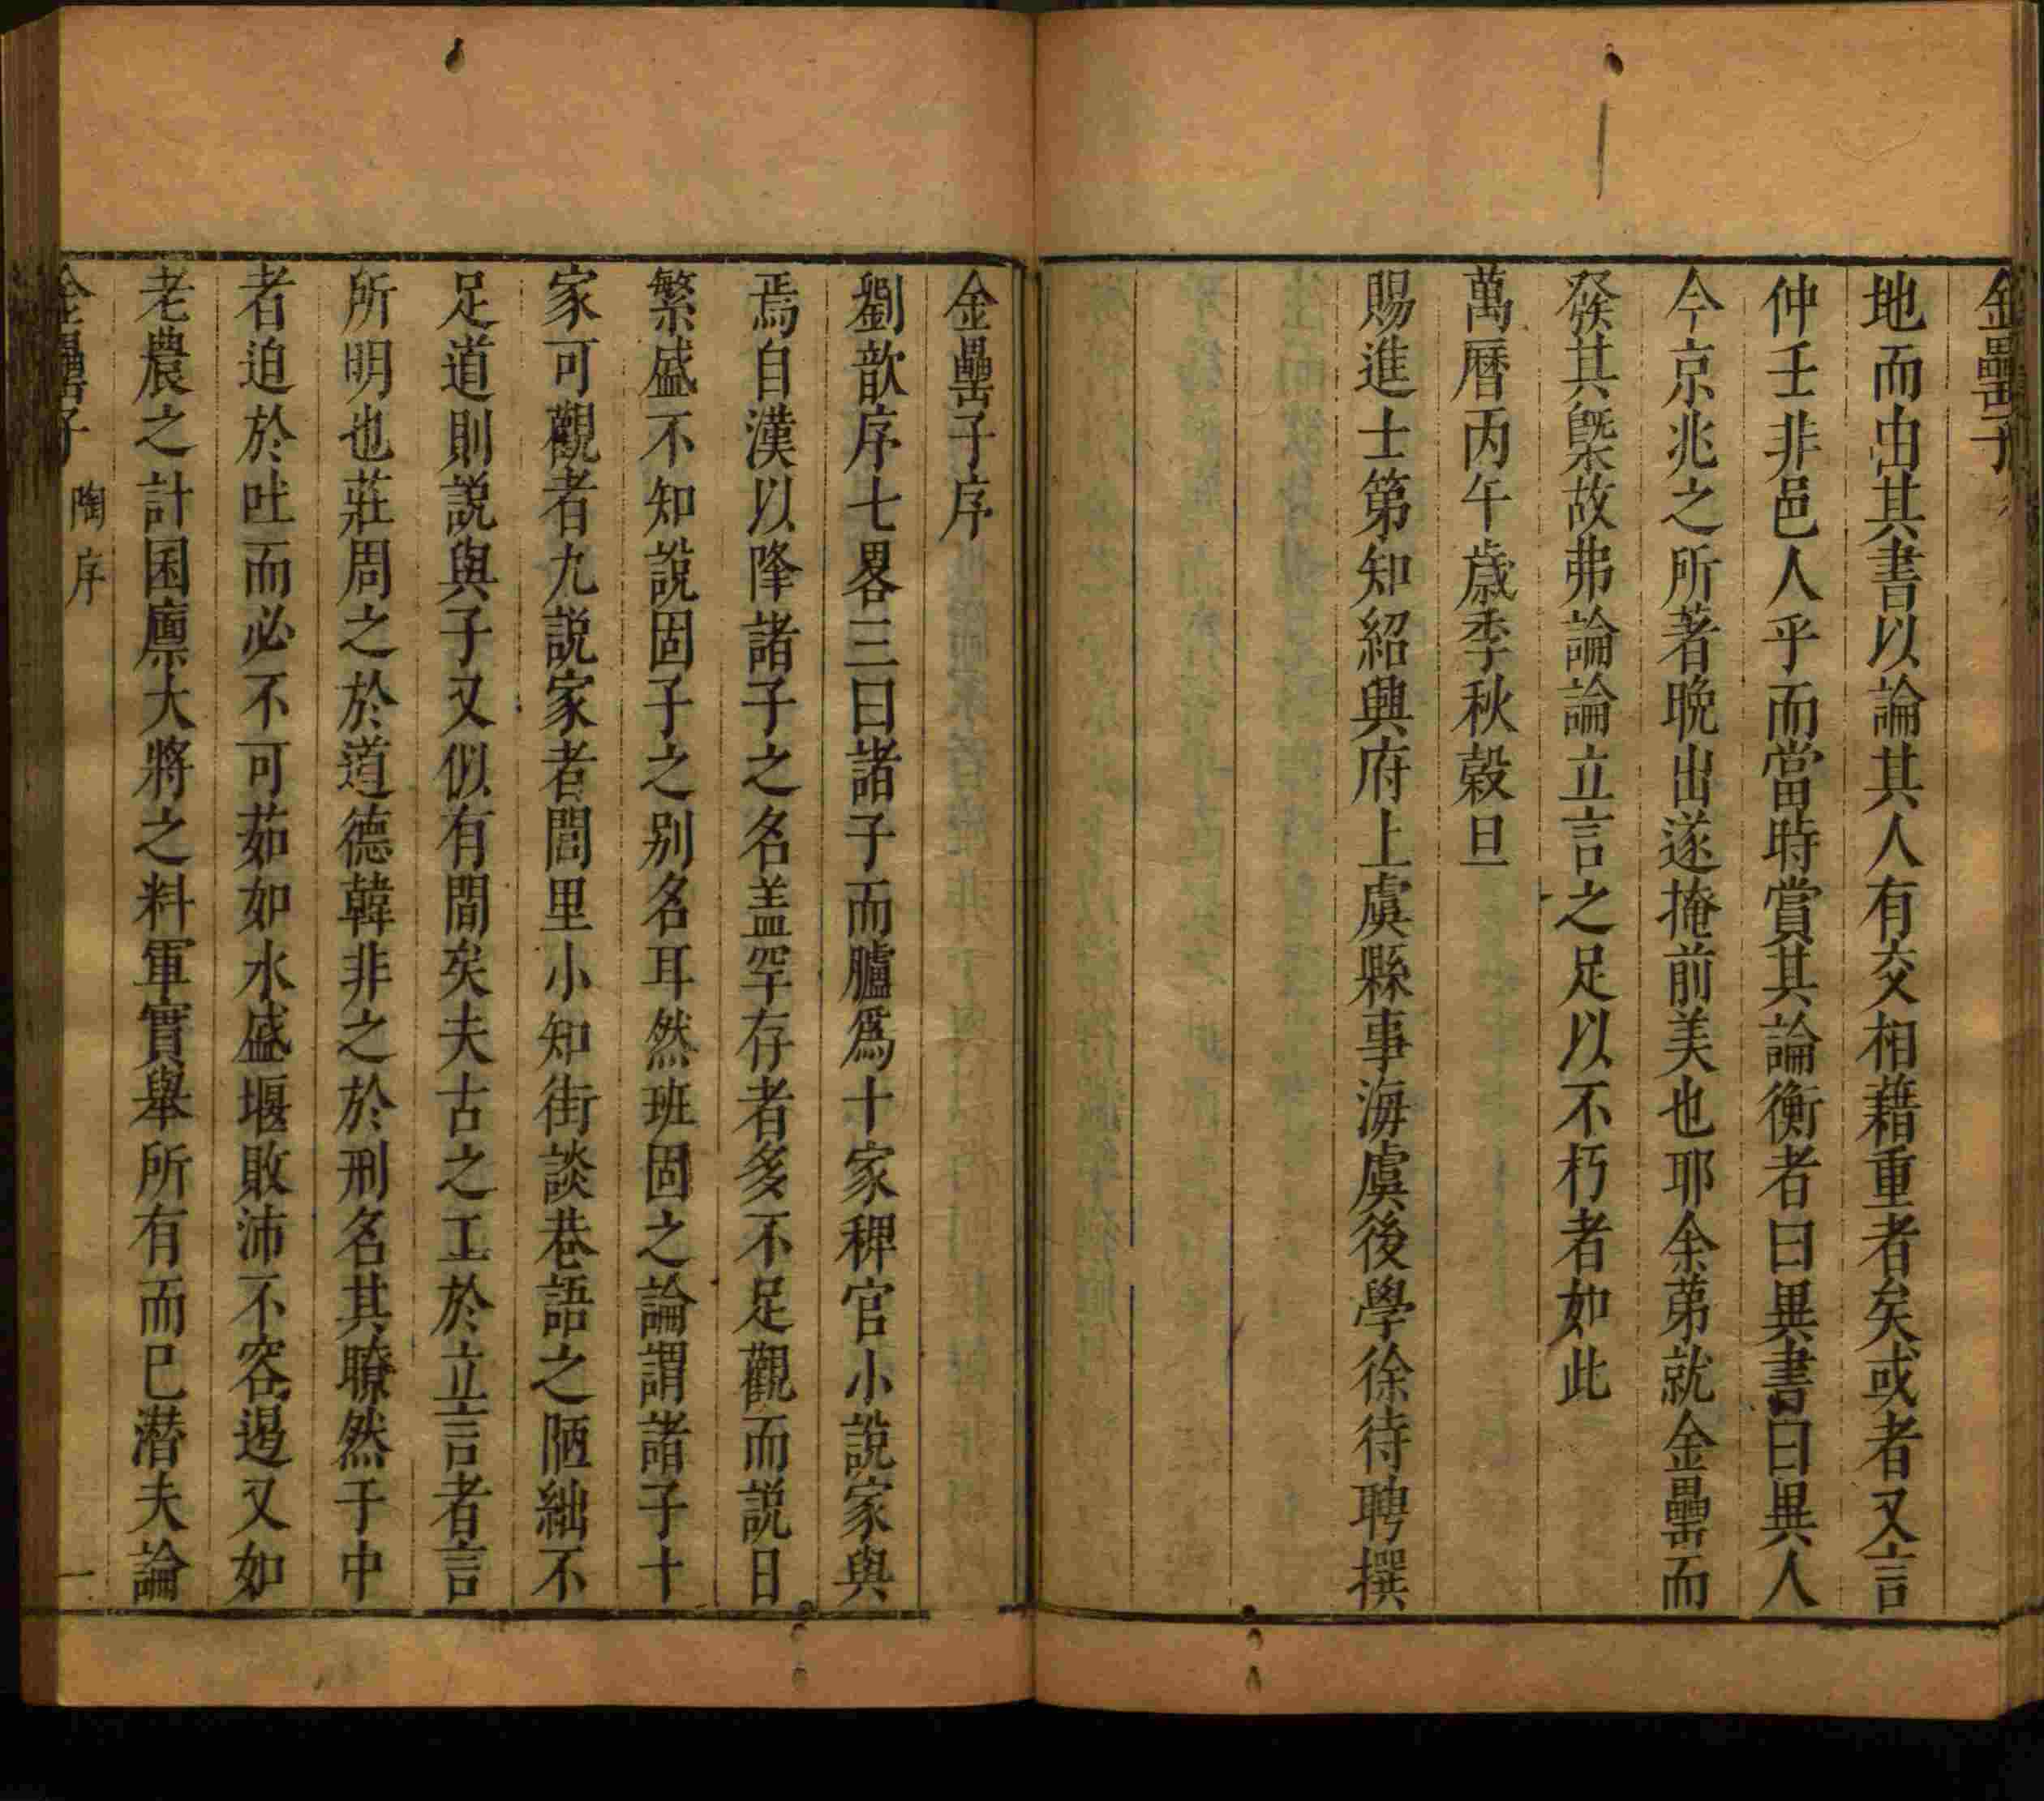 金罍子
地而由其書以論其人有交相藉重者矣或者又言
仲壬非邑人乎而當時賞其論衡者曰異書曰異人
今京兆之所著晩出遂掩前美也耶余苐就金罍而
發其槩故弗論論立言之足以不朽者如此
萬曆丙午歲季秋穀旦
賜進士第知紹興府上虞縣事海虞後學徐待聘撰
金罍子序
劉歆序七畧三曰諸子而臚爲十家稗官小說家與
焉自漢以降諸子之名盖罕存者多不足觀而說日
繁盛不知說固子之别名耳然班固之論謂諸子十
家可觀者九說家者閭里小知街談巷語之陋絀不
足道則説與子又似有間矣夫古之工於立言者言
所明也莊周之於道德韓非之於刑名其瞭然于中
者迫於吐而必不可茹如水盛堰敗沛不容遏又如
老農之計囷廪大將之料軍實舉所有而已潜夫論
金罍子 陶序 一